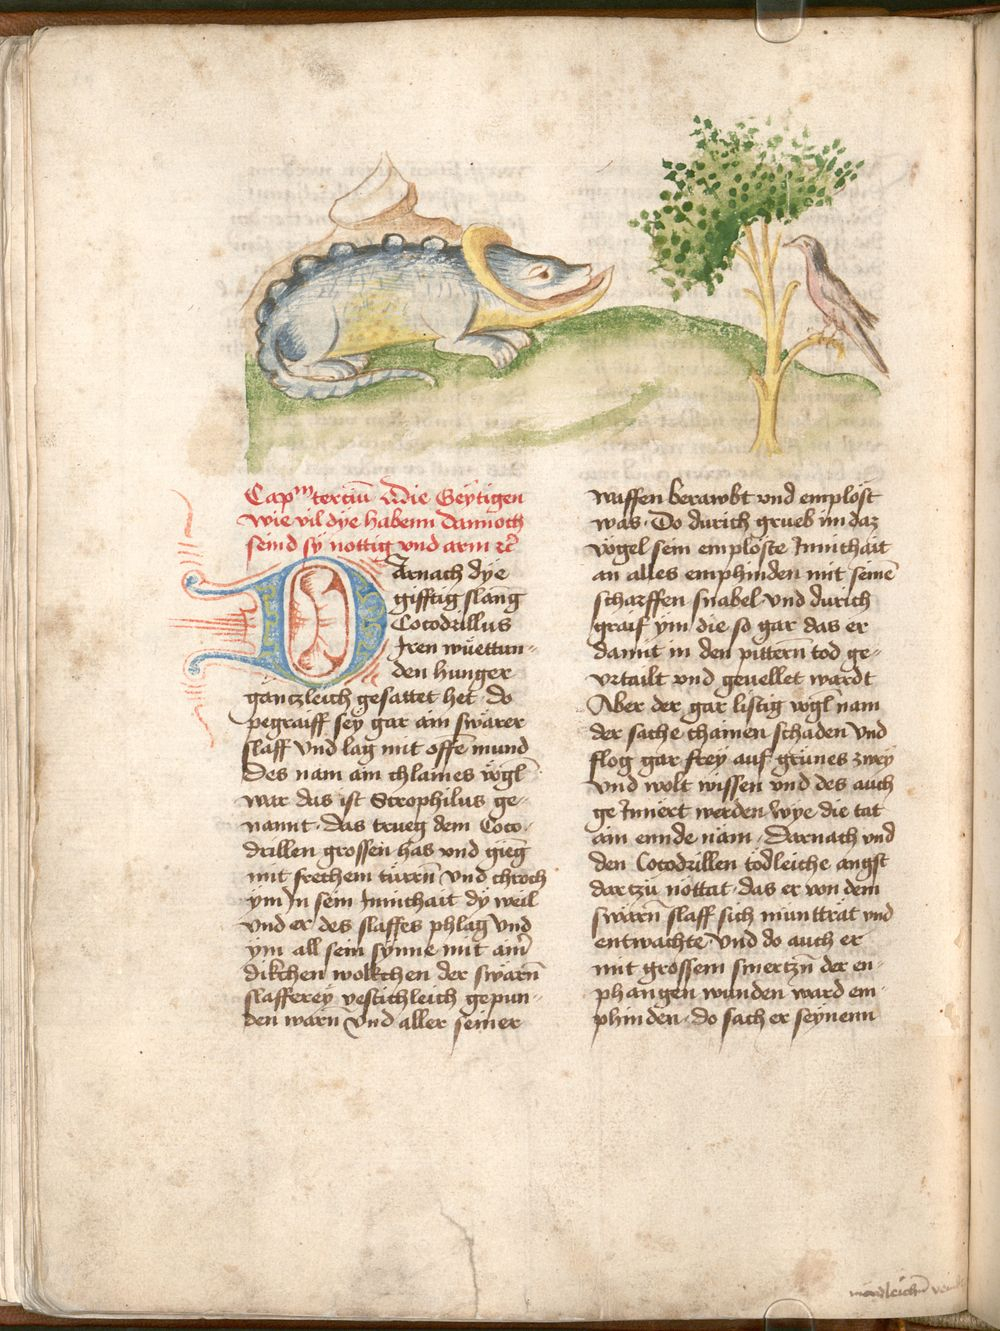 Capm tercium Wie die Geytigen
wie vil dye habenn dannoch
seind sy nottig vnd arm etc
Darnach dye
gifftig slang
Cocodrillus
Iren wuettun-
den hunger
gänczleich gesattet het · do
pegraiff sey gar ain swärer
slaff Vnd lag mit offē mund
Des nam ain chlaines vögl
war das ist Strophilus ge-
nannt · das trueg dem Coco-
drillen grossen has vnd gieng
mit frechem türrn̄ Vnd chroch
ym In sein Innichait dy weil
vnd er des slaffes phlag Vnd
ym all sein synne mit aim̄
dikchen wolkchen der swärn̄
slafferey vestichleich gepun-
den warn̄ Vnd aller seiner
waffen berawbt vnd emplöst
was · Do durich grueb im daz
vögel sein emplöste Innichait
an alles emphinden mit seinē
scharffen snabel · vnd durich
graif ym die so gar das er
damit in den pittern̄ tod ge-
vrtailt vnd geuellet wardt
Aber der gar listig vogl̄ nam
der sache chainen schaden Vnd
flog gar frey auf grünes zwey
Vnd wolt wissen vnd des auch
ge Innert werden wye die tat
ain ennde näm · Darnach vnd
den Cocodrillen tödleiche angst
darczu nottat · das er von dem
swärn̄ slaff sich munttrat vnd
entwachte · Vnd do auch er
mit grossem smertzn̄ der en-
phangen wunden ward em-
phinden · do sach er seynenn